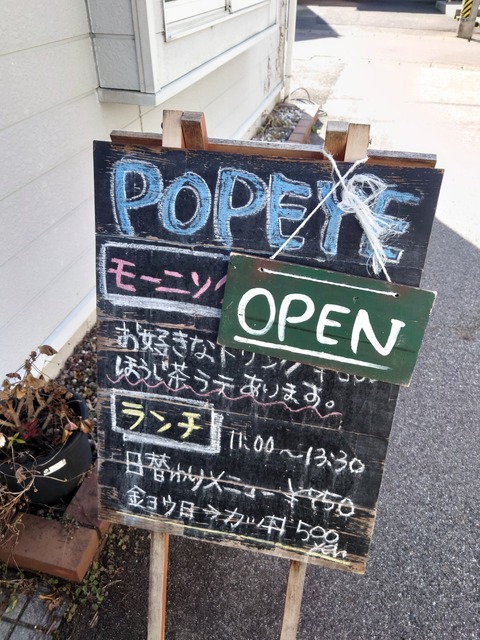 POPEYE
モーニン
OPEN
お好きなドリンク
ほうじ茶ラテあります。
ランチ
11:00〜13:30
日替わりメニュー ¥750
金ヨウ日 チカツ丼 500yen